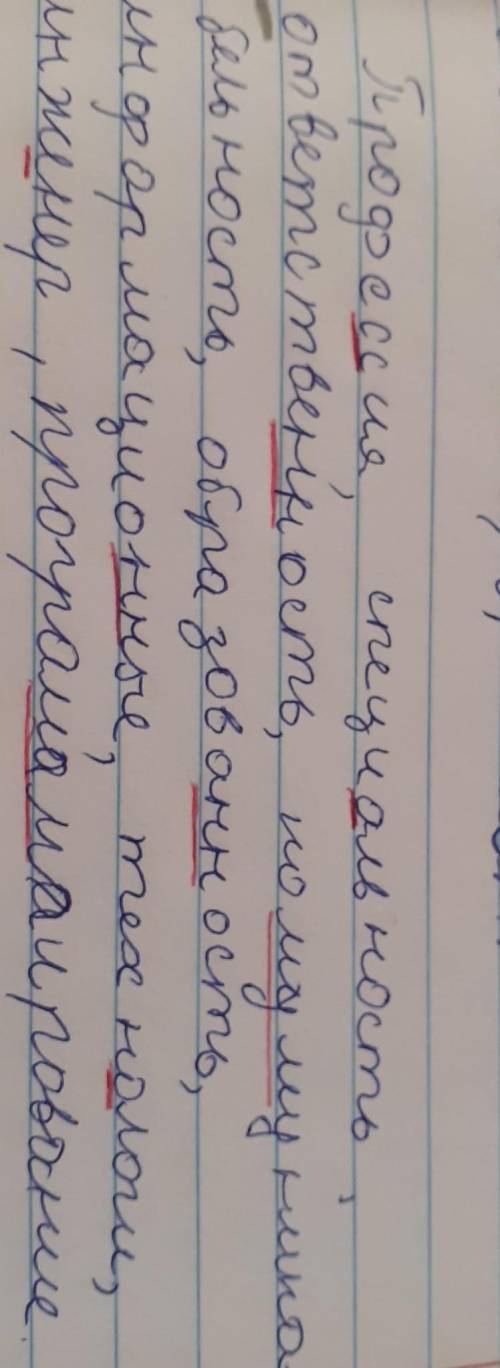 Профессия, специальность,
ответственность, коммуника
бельность, образованность,
информационные, технологи,
инженер, программаирование.